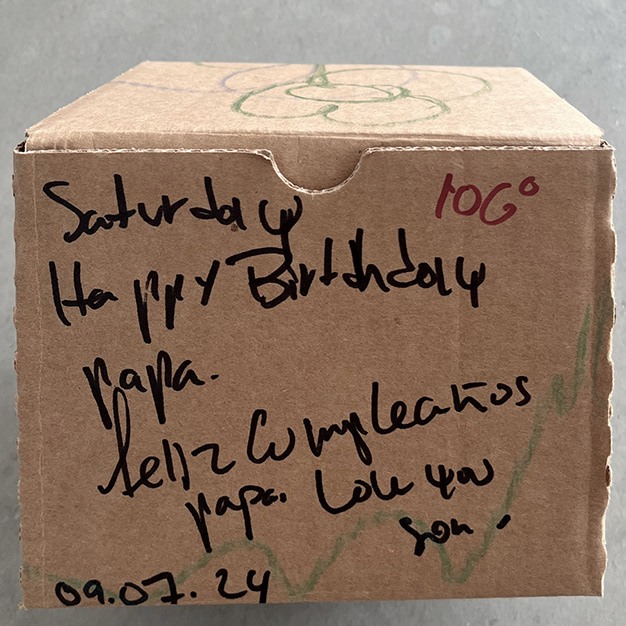 Saturday
106°
Happy Birthday
papa.
feliz Cumpleaños
papa. Love you
son.
09.07.24